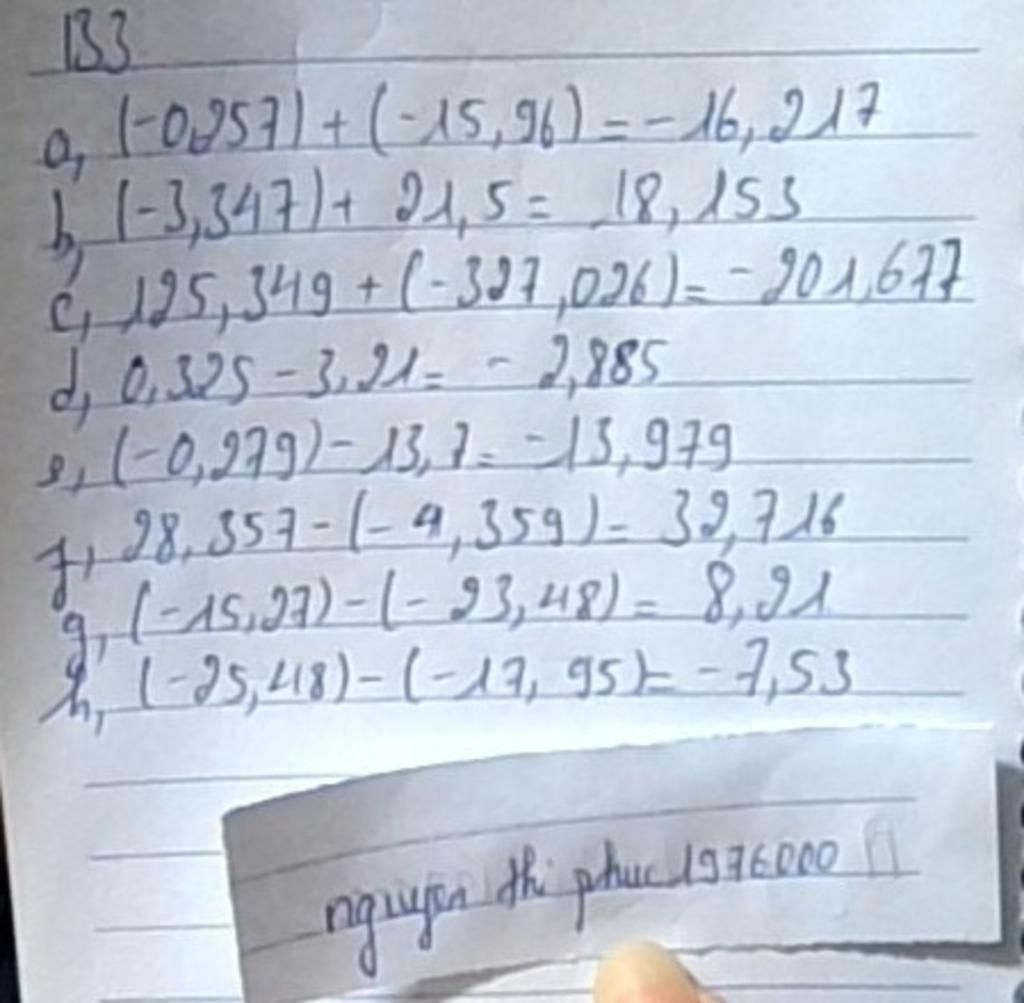 B3
a, (-0,257) + (-15,96) = -16,217
b, (-3,347) + 21,5 = 18,153
c, 125,349 + (-327,026) = -201,677
d, 0,325 - 3,21 = -2,885
e, (-0,279) - 13,7 = -13,979
f, 28,357 - (-4,359) = 32,716
g, (-15,27) - (-23,48) = 8,21
h, (-25,48) - (-17,95) = -7,53
nguyen thi phuc 1976000